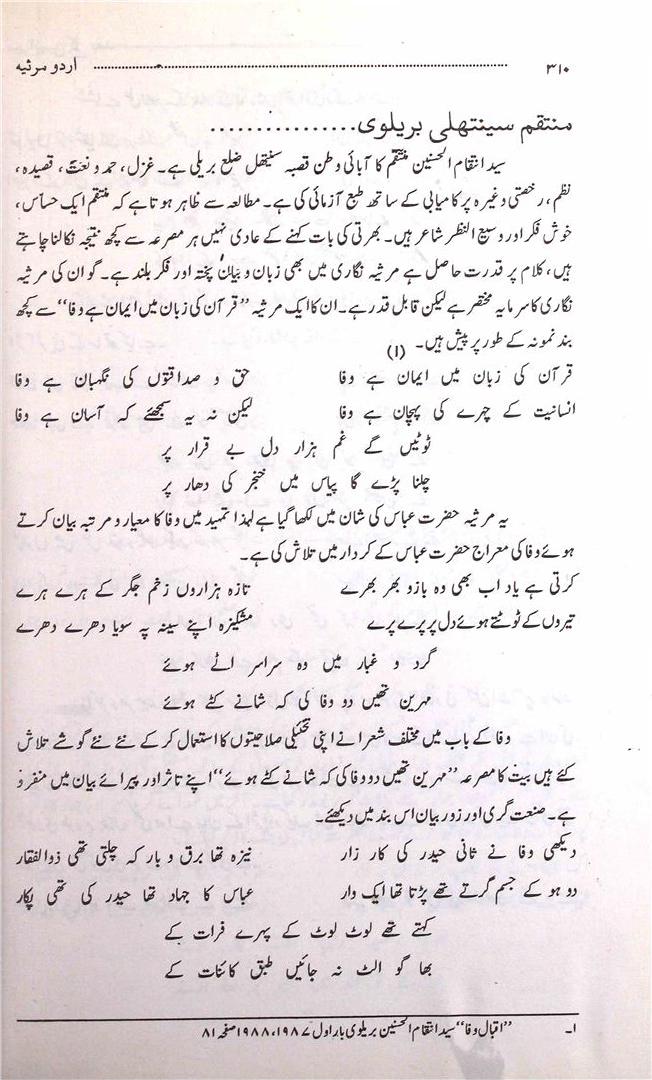 ۳۱۰ اردو مرثیہ
منتقم سینتھلی بریلوی................
سید انتقام الحسنین منتقم کا آبائی وطن قصبہ سنیتھل ضلع بریلی ہے۔ غزل، حمد و نعت، قصیدہ،
نظم، رخصتی وغیرہ پر کامیابی کے ساتھ طبع آزمائی کی ہے۔ مطالعہ سے ظاہر ہوتا ہے کہ منتقم ایک حساس،
خوش فکر اور وسیع النظر شاعر ہیں۔ بھرتی کی بات کہنے کے عادی نہیں ہر مصرعہ سے کچھ نتیجہ نکالنا چاہتے
ہیں، کلام پر قدرت حاصل ہے مرثیہ نگاری میں بھی زبان و بیان پختہ اور فکر بلند ہے۔ گو ان کی مرثیہ
نگاری کا سرمایہ مختصر ہے لیکن قابل قدر ہے۔ ان کا ایک مرثیہ ”قرآن کی زبان میں ایمان ہے وفا“ سے کچھ
بند نمونہ کے طور پر پیش ہیں۔ (۱)
قرآن کی زبان میں ایمان ہے وفا حق و صداقتوں کی نگہبان ہے وفا
انسانیت کے چہرے کی پہچان ہے وفا لیکن نہ یہ سمجھئے کہ آسان ہے وفا
ٹوٹیں گے غم ہزار دل بے قرار پر
چلنا پڑے گا پیاس میں خنجر کی دھار پر
یہ مرثیہ حضرت عباس کی شان میں لکھا گیا ہے لہٰذا تمہید میں وفا کا معیار و مرتبہ بیان کرتے
ہوئے وفا کی معراج حضرت عباس کے کردار میں تلاش کی ہے۔
کرتی ہے یاد اب بھی وہ بازو بھر بھرے تازہ ہزاروں زخم جگر کے ہرے ہرے
تیروں کے ٹوٹتے ہوئے دل پر پرے پرے مشکیزہ اپنے سینہ پہ سویا دھرے دھرے
گرد و غبار میں وہ سراسر اٹے ہوئے
مہریں تھیں دو وفا کی کہ شانے کٹے ہوئے
وفا کے باب میں مختلف شعرا نے اپنی تخیلی صلاحیتوں کا استعمال کر کے نئے نئے گوشے تلاش
کئے ہیں بیت کا مصرعہ ”مہریں تھیں دو وفا کی کہ شانے کٹے ہوئے“ اپنے تاثر اور پیرائے بیان میں منفرد
ہے۔ صنعت گری اور زور بیان اس بند میں دیکھئے۔
دیکھی وفا نے ثانی حیدر کی کار زار نیزہ تھا برق و بار کہ چلتی تھی ذوالفقار
دو ہو کے جسم گرتے تھے پڑتا تھا ایک وار عباس کا جہاد تھا حیدر کی تھی پکار
کہتے تھے لوٹ لوٹ کے پہرے فرات کے
بھاگو الٹ نہ جائیں طبق کائنات کے
۱۔ ”اقبال وفا“ سید انتقام الحسنین بریلوی بار اول ۱۹۸۷، ۱۹۸۸ صفحہ ۸۱